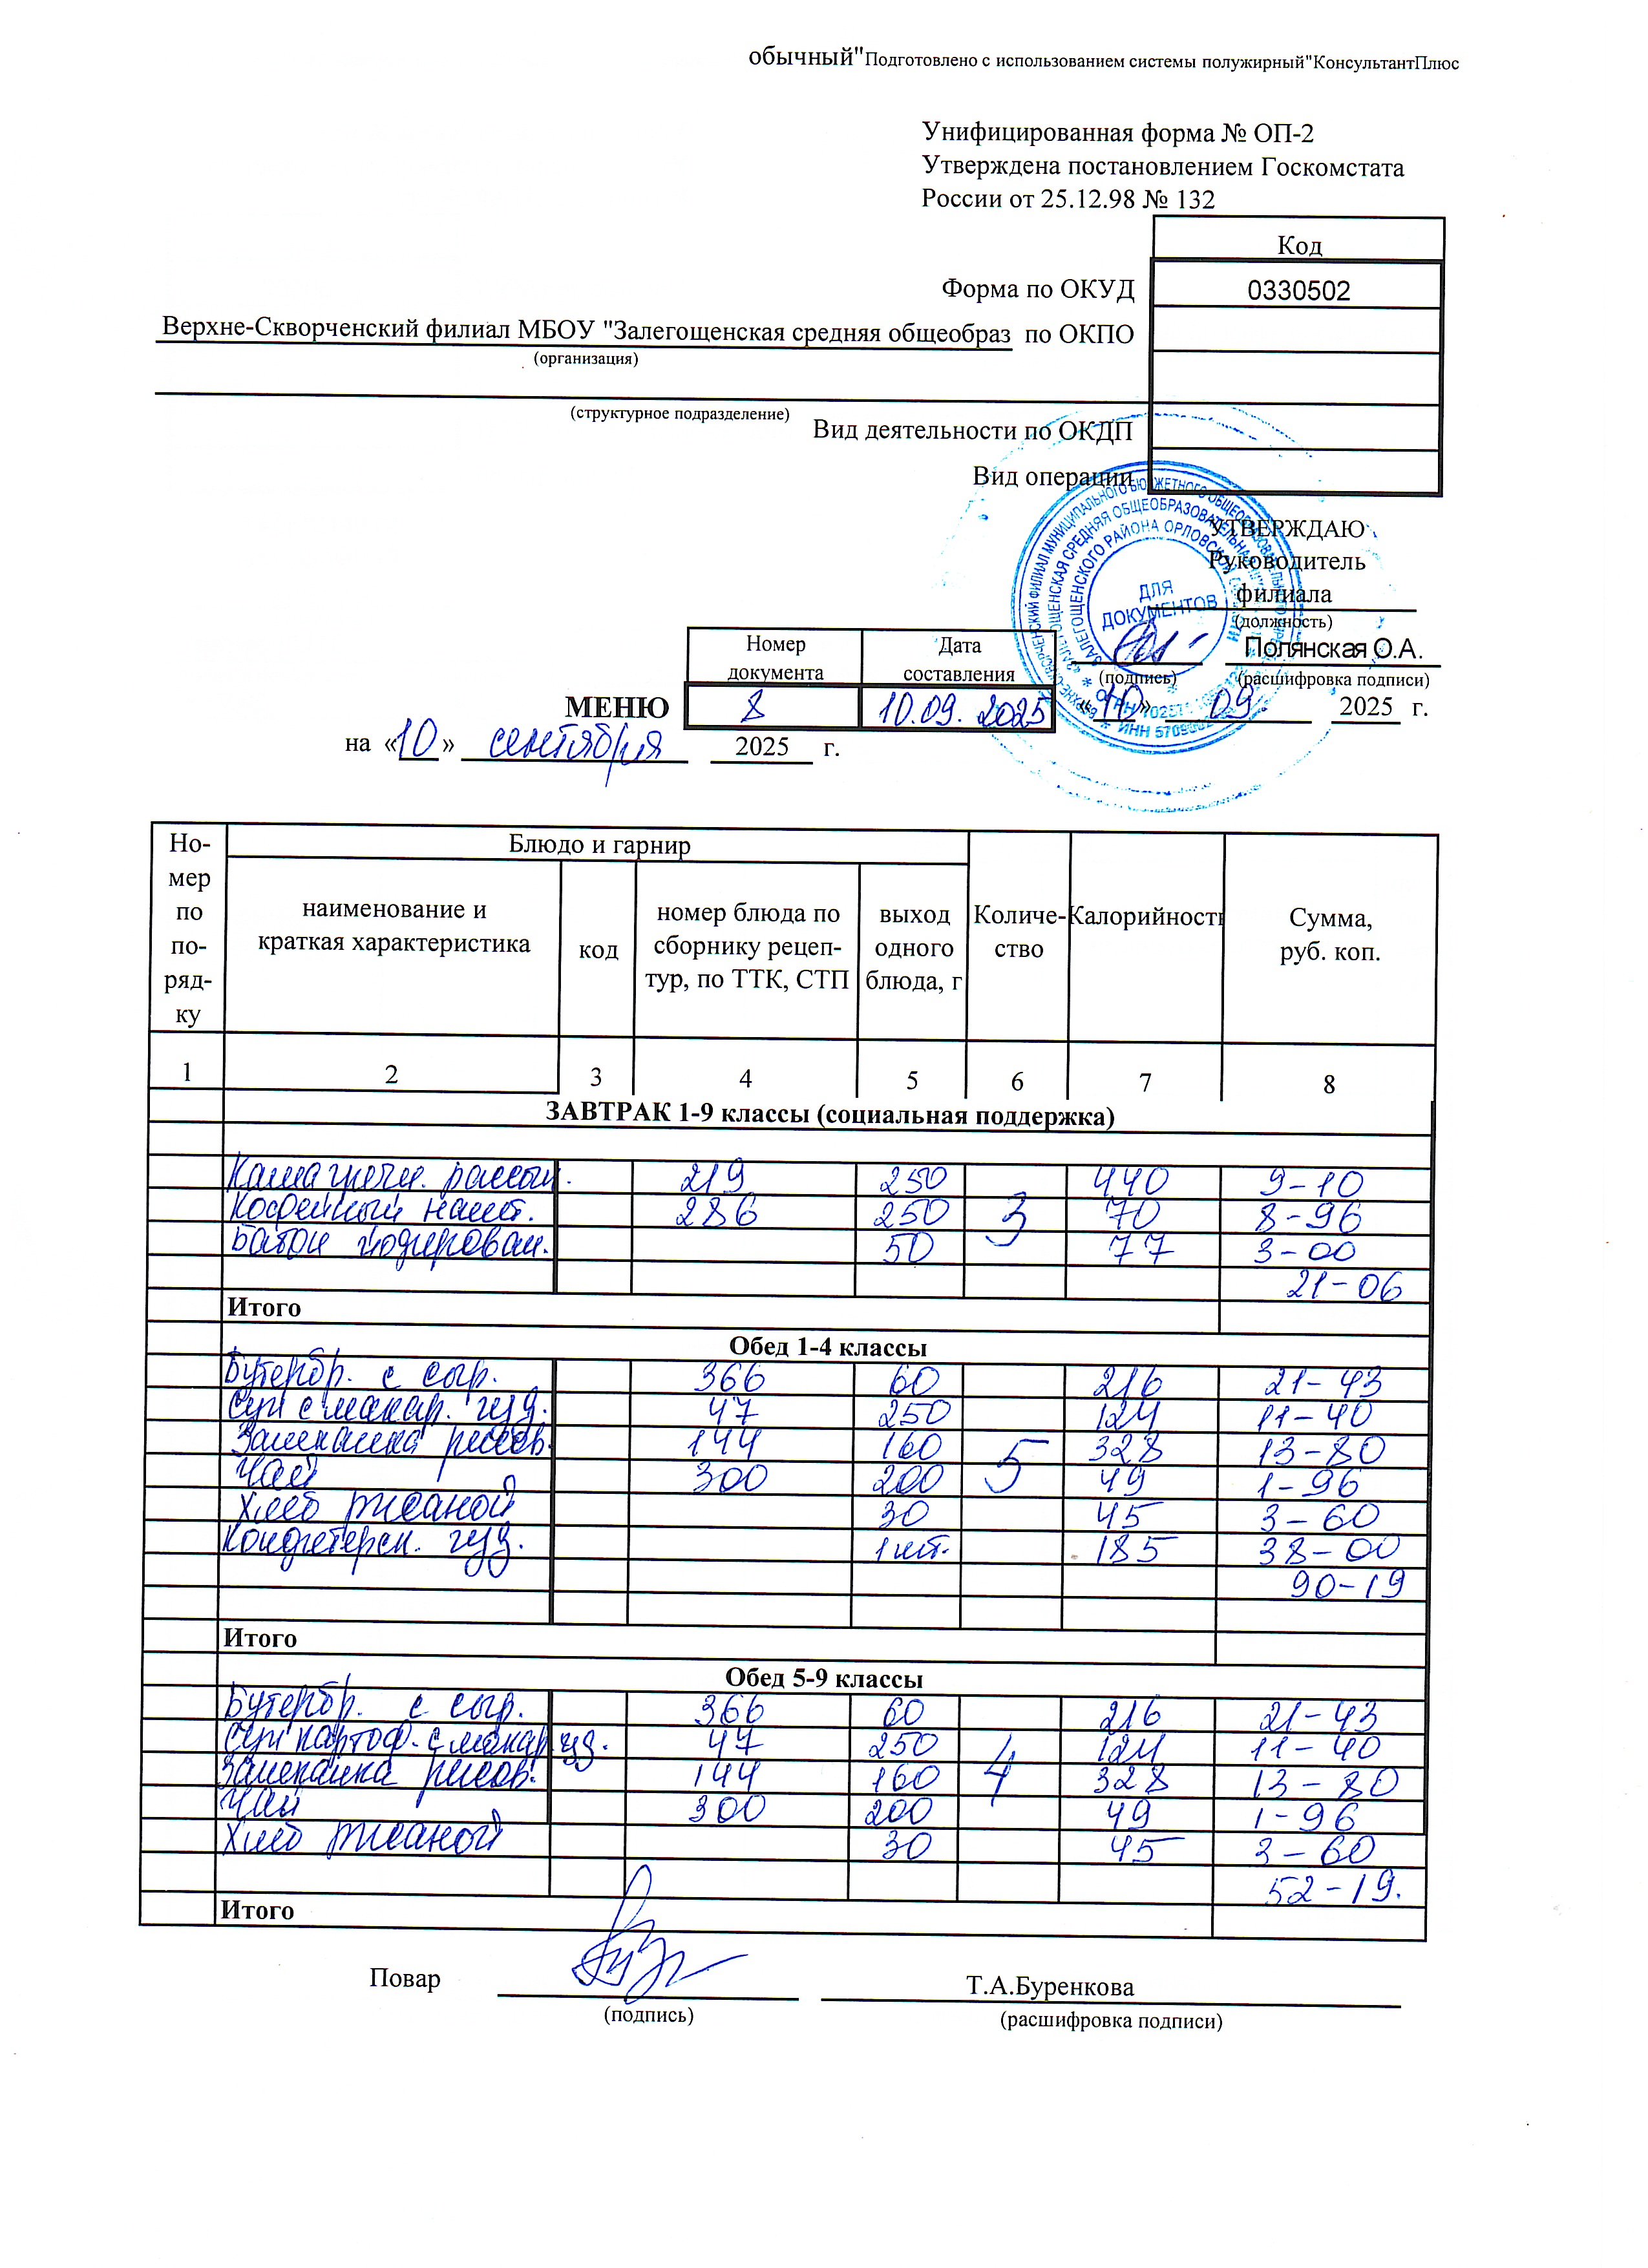 обычный"Подготовлено с использованием системы полужирный"КонсультантПлюс
Унифицированная форма № ОП-2
Утверждена постановлением Госкомстата
России от 25.12.98 № 132
Код
Форма по ОКУД 0330502
Верхне-Скворченский филиал МБОУ "Залегощенская средняя общеобраз по ОКПО
(организация)
(структурное подразделение)
Вид деятельности по ОКДП
Вид операции
УТВЕРЖДАЮ
Руководитель
филиала
(должность)
ДЛЯ ДОКУМЕНТОВ
Полянская О.А.
(подпись) (расшифровка подписи)
«10» 09. 2025 г.
Номер документа Дата составления
МЕНЮ 8 10.09.2025
на «10» сентября 2025 г.
Но-мер по по-ряд-ку Блюдо и гарнир Количе-ство Калорийность Сумма, руб. коп.
наименование и краткая характеристика код номер блюда по сборнику рецеп-тур, по ТТК, СТП выход одного блюда, г
1 2 3 4 5 6 7 8
ЗАВТРАК 1-9 классы (социальная поддержка)
Каша гречн. рассып. 219 250 440 9-10
Кофейный напит. 286 250 3 70 8-96
Батон йодирован. 50 77 3-00
21-06
Итого
Обед 1-4 классы
Бутербр. с сыр. 366 60 216 21-43
Суп с макар. изд. 47 250 124 11-40
Запеканка рисов. 144 160 5 328 13-80
Чай 300 200 49 1-96
Хлеб ржаной 30 45 3-60
Кондитерск. изд. 1 шт. 185 38-00
90-19
Итого
Обед 5-9 классы
Бутербр. с сыр. 366 60 216 21-43
Суп картоф. с макар. изд. 47 250 4 124 11-40
Запеканка рисов. 144 160 328 13-80
Чай 300 200 49 1-96
Хлеб ржаной 30 45 3-60
52-19.
Итого
Повар Т.А.Буренкова
(подпись) (расшифровка подписи)